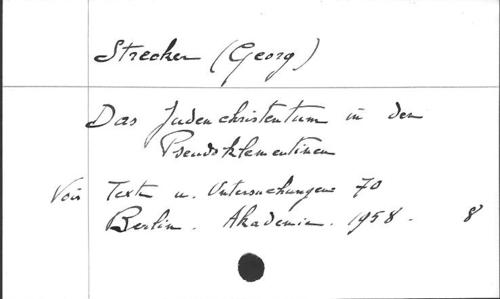 Strecker (Georg)
Das Judenchristentum in den
Pseudoklementinen
Voir Texte u. Untersuchungen 70
Berlin. Akademie. 1958. 8